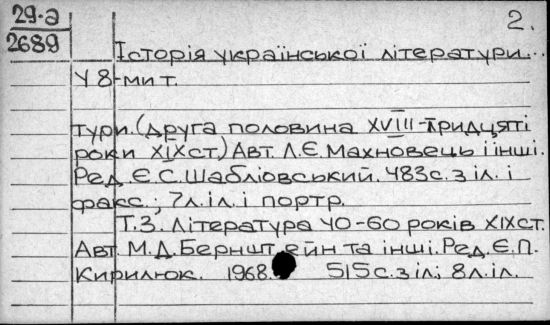 29-а 2.
2689
Історія української літератури...
У 8-ми т.
тури.(друга половина XVIII-тридцяті
роки XIXст.) Авт. Л.Є.Махновець і інші.
Ред. Є.С.Шабліовський. 483с. з іл. і
факс.; 7л.іл. і портр.
Т.3. Література 40-60 років XIXст.
Авт. М.Д.Бернштейн та інші. Ред. Є.П.
Кирилюк. 1968. 515с. з іл.; 8л.іл.